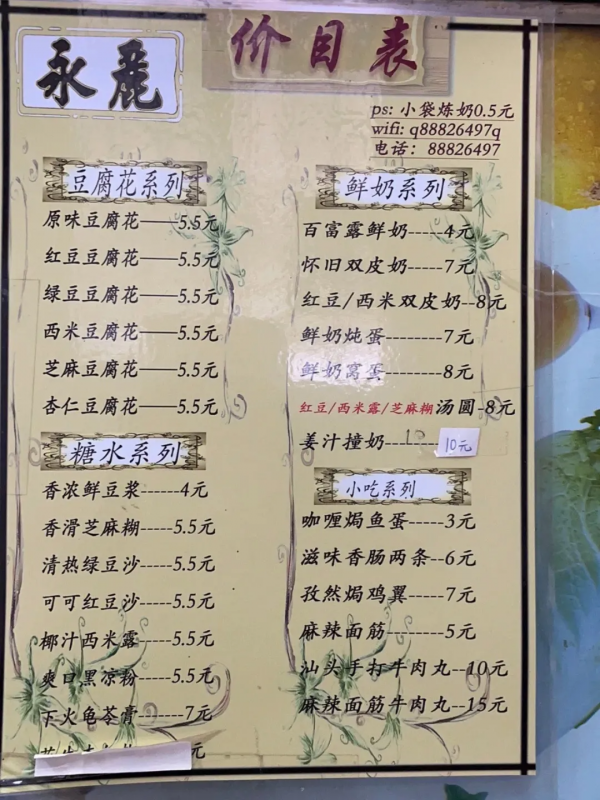 永麗
价目表
ps: 小袋炼奶0.5元
wifi: q88826497q
电话: 88826497
豆腐花系列
原味豆腐花——5.5元
红豆豆腐花——5.5元
绿豆豆腐花——5.5元
西米豆腐花——5.5元
芝麻豆腐花——5.5元
杏仁豆腐花——5.5元
糖水系列
香浓鲜豆浆------4元
香滑芝麻糊-----5.5元
清热绿豆沙-----5.5元
可可红豆沙-----5.5元
椰汁西米露-----5.5元
爽口黑凉粉-----5.5元
下火龟苓膏------7元
元
鲜奶系列
百富露鲜奶-----4元
怀旧双皮奶-----7元
红豆/西米双皮奶--8元
鲜奶炖蛋--------7元
鲜奶窝蛋--------8元
红豆/西米露/芝麻糊汤圆-8元
姜汁撞奶--------10元
小吃系列
咖喱焗鱼蛋-----3元
滋味香肠两条--6元
孜然焗鸡翼-----7元
麻辣面筋-------5元
汕头手打牛肉丸--10元
麻辣面筋牛肉丸--15元